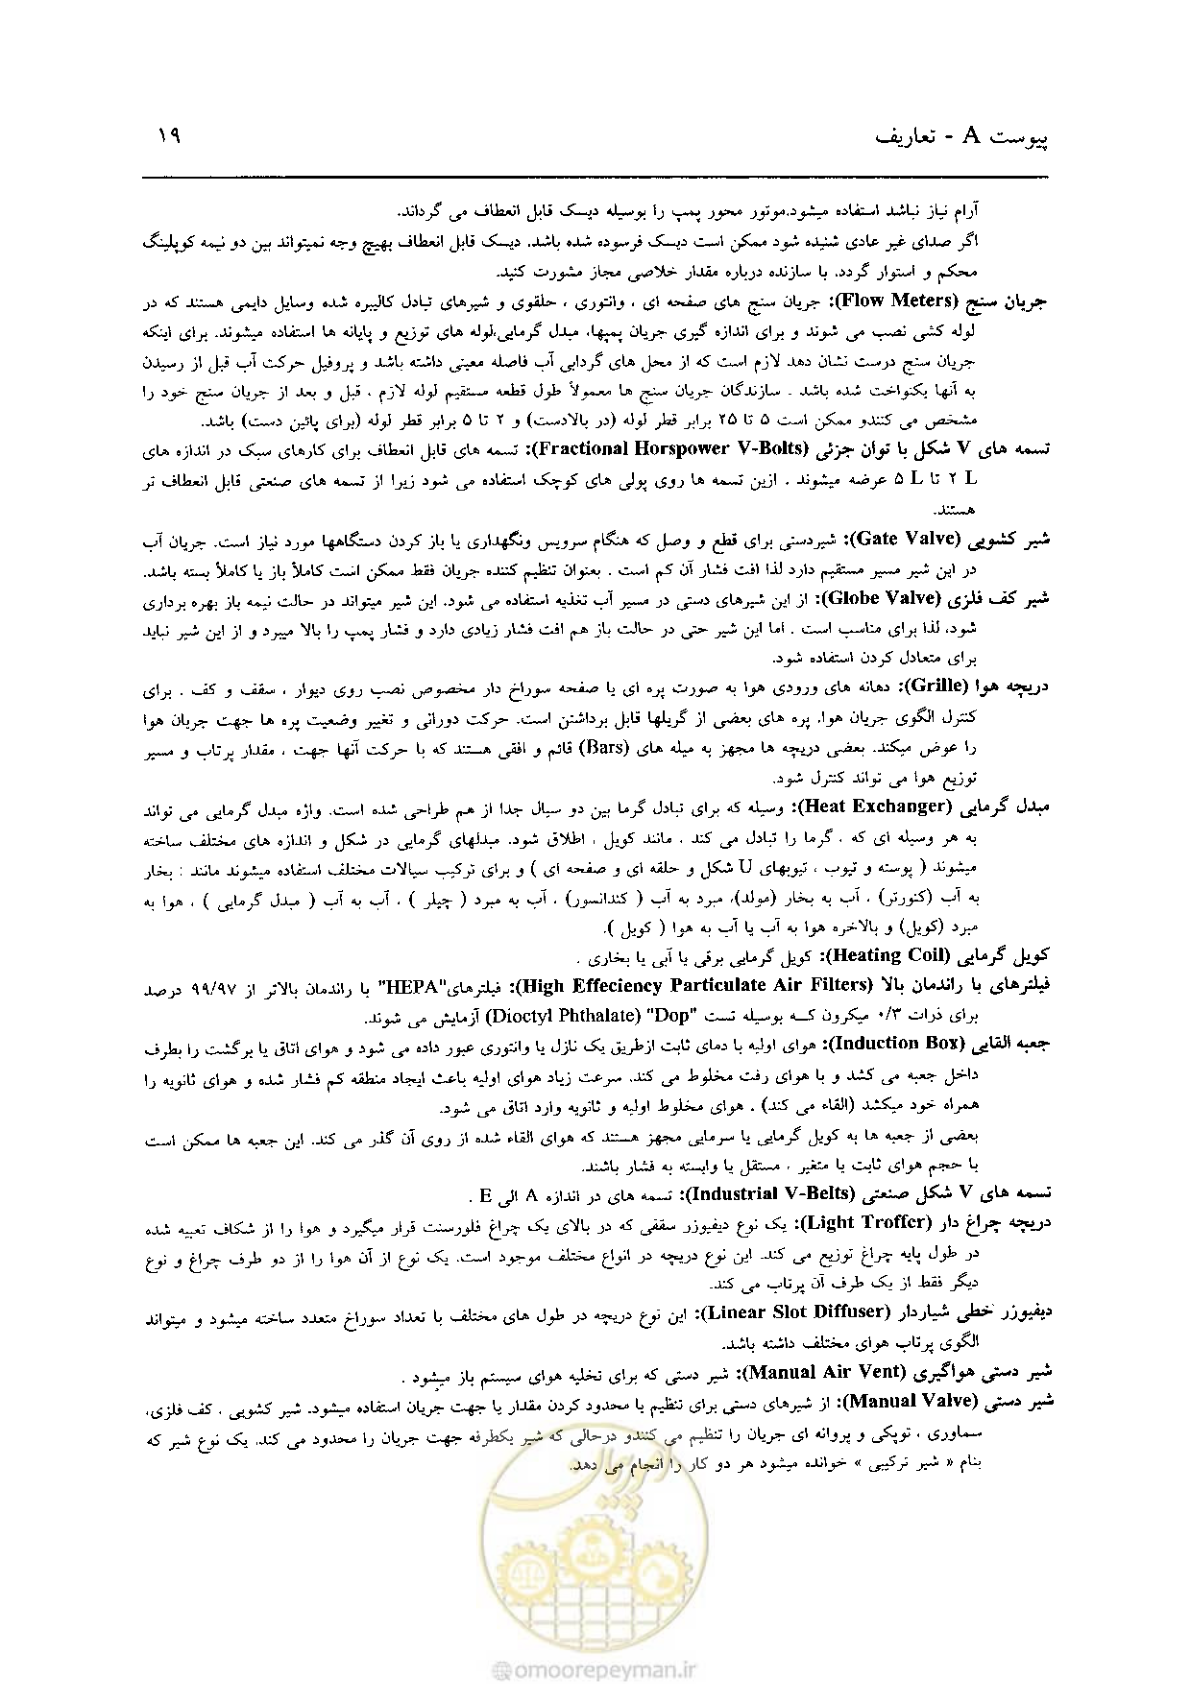 پیوست A - تعاریف ۱۹
آرام نیاز نباشد استفاده میشود.موتور محور پمپ را بوسیله دیسک قابل انعطاف می گرداند.
اگر صدای غیر عادی شنیده شود ممکن است دیسک فرسوده شده باشد. دیسک قابل انعطاف بهیچ وجه نمیتواند بین دو نیمه کوپلینگ
محکم و استوار گردد. با سازنده درباره مقدار خلاصی مجاز مشورت کنید.
جریان سنج (Flow Meters): جریان سنج های صفحه ای ، وانتوری ، حلقوی و شیرهای تبادل کالیبره شده وسایل دایمی هستند که در
لوله کشی نصب می شوند و برای اندازه گیری جریان پمپها، مبدل گرمایی،لوله های توزیع و پایانه ها استفاده میشوند. برای اینکه
جریان سنج درست نشان دهد لازم است که از محل های گردابی آب فاصله معینی داشته باشد و پروفیل حرکت آب قبل از رسیدن
به آنها یکنواخت شده باشد . سازندگان جریان سنج ها معمولاً طول قطعه مستقیم لوله لازم ، قبل و بعد از جریان سنج خود را
مشخص می کنندو ممکن است ۵ تا ۲۵ برابر قطر لوله (در بالادست) و ۲ تا ۵ برابر قطر لوله (برای پائین دست) باشد.
تسمه های V شکل با توان جزئی (Fractional Horspower V-Bolts): تسمه های قابل انعطاف برای کارهای سبک در اندازه های
۲ L تا ۵ L عرضه میشوند . ازین تسمه ها روی پولی های کوچک استفاده می شود زیرا از تسمه های صنعتی قابل انعطاف تر
هستند.
شیر کشویی (Gate Valve): شیردستی برای قطع و وصل که هنگام سرویس ونگهداری یا باز کردن دستگاهها مورد نیاز است. جریان آب
در این شیر مسیر مستقیم دارد لذا افت فشار آن کم است . بعنوان تنظیم کننده جریان فقط ممکن است کاملاً باز یا کاملاً بسته باشد.
شیر کف فلزی (Globe Valve): از این شیرهای دستی در مسیر آب تغذیه استفاده می شود. این شیر میتواند در حالت نیمه باز بهره برداری
شود، لذا برای مناسب است . اما این شیر حتی در حالت باز هم افت فشار زیادی دارد و فشار پمپ را بالا میبرد و از این شیر نباید
برای متعادل کردن استفاده شود.
دریچه هوا (Grille): دهانه های ورودی هوا به صورت پره ای یا صفحه سوراخ دار مخصوص نصب روی دیوار ، سقف و کف . برای
کنترل الگوی جریان هوا، پره های بعضی از گریلها قابل برداشتن است. حرکت دورانی و تغییر وضعیت پره ها جهت جریان هوا
را عوض میکند. بعضی دریچه ها مجهز به میله های (Bars) قائم و افقی هستند که با حرکت آنها جهت ، مقدار پرتاب و مسیر
توزیع هوا می تواند کنترل شود.
مبدل گرمایی (Heat Exchanger): وسیله که برای تبادل گرما بین دو سیال جدا از هم طراحی شده است. واژه مبدل گرمایی می تواند
به هر وسیله ای که ، گرما را تبادل می کند ، مانند کویل ، اطلاق شود. مبدلهای گرمایی در شکل و اندازه های مختلف ساخته
میشوند ( پوسته و تیوب ، تیوبهای U شکل و حلقه ای و صفحه ای ) و برای ترکیب سیالات مختلف استفاده میشوند مانند : بخار
به آب (کنورتر) ، آب به بخار (مولد)، مبرد به آب ( کندانسور) ، آب به مبرد ( چیلر ) ، آب به آب ( مبدل گرمایی ) ، هوا به
مبرد (کویل) و بالاخره هوا به آب یا آب به هوا ( کویل ).
کویل گرمایی (Heating Coil): کویل گرمایی برقی یا آبی یا بخاری .
فیلترهای با راندمان بالا (High Effeciency Particulate Air Filters): فیلترهای"HEPA" با راندمان بالاتر از ۹۹/۹۷ درصد
برای ذرات ۰/۳ میکرون کـه بوسیله تست "Dop" (Dioctyl Phthalate) آزمایش می شوند.
جعبه القایی (Induction Box): هوای اولیه با دمای ثابت ازطریق یک نازل یا وانتوری عبور داده می شود و هوای اتاق یا برگشت را بطرف
داخل جعبه می کشد و با هوای رفت مخلوط می کند. سرعت زیاد هوای اولیه باعث ایجاد منطقه کم فشار شده و هوای ثانویه را
همراه خود میکشد (القاء می کند) . هوای مخلوط اولیه و ثانویه وارد اتاق می شود.
بعضی از جعبه ها به کویل گرمایی یا سرمایی مجهز هستند که هوای القاء شده از روی آن گذر می کند. این جعبه ها ممکن است
با حجم هوای ثابت یا متغیر ، مستقل یا وابسته به فشار باشند.
تسمه های V شکل صنعتی (Industrial V-Belts): تسمه های در اندازه A الی E .
دریچه چراغ دار (Light Troffer): یک نوع دیفیوزر سقفی که در بالای یک چراغ فلورسنت قرار میگیرد و هوا را از شکاف تعبیه شده
در طول پایه چراغ توزیع می کند. این نوع دریچه در انواع مختلف موجود است. یک نوع از آن هوا را از دو طرف چراغ و نوع
دیگر فقط از یک طرف آن پرتاب می کند.
دیفیوزر خطی شیاردار (Linear Slot Diffuser): این نوع دریچه در طول های مختلف با تعداد سوراخ متعدد ساخته میشود و میتواند
الگوی پرتاب هوای مختلف داشته باشد.
شیر دستی هواگیری (Manual Air Vent): شیر دستی که برای تخلیه هوای سیستم باز میشود .
شیر دستی (Manual Valve): از شیرهای دستی برای تنظیم یا محدود کردن مقدار یا جهت جریان استفاده میشود. شیر کشویی ، کف فلزی،
سماوری ، توپکی و پروانه ای جریان را تنظیم می کنندو درحالی که شیر یکطرفه جهت جریان را محدود می کند. یک نوع شیر که
بنام « شیر ترکیبی » خوانده میشود هر دو کار را انجام می دهد.
امور پیمان
@omoorepeyman.ir